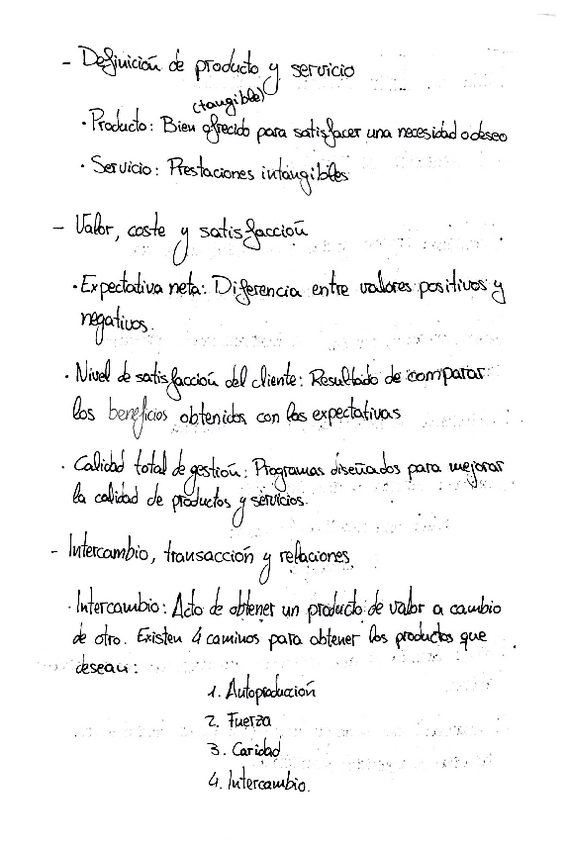 - Definición de producto y servicio
(tangible)
· Producto: Bien ofrecido para satisfacer una necesidad o deseo
· Servicio: Prestaciones intangibles
- Valor, coste y satisfacción
· Expectativa neta: Diferencia entre valores positivos y
negativos.
· Nivel de satisfacción del cliente: Resultado de comparar
los beneficios obtenidos con las expectativas
· Calidad total de gestión: Programas diseñados para mejorar
la calidad de productos y servicios.
- Intercambio, transacción y relaciones
· Intercambio: Acto de obtener un producto de valor a cambio
de otro. Existen 4 caminos para obtener los productos que
desean:
1. Autoproducción
2. Fuerza
3. Caridad
4. Intercambio.